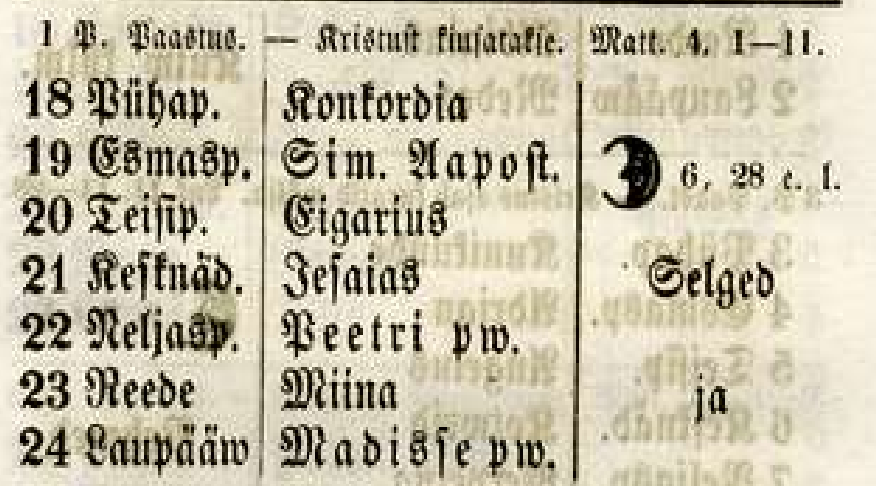 1 P. Paastus. — Kristust kiusatakse. Matt. 4, 1—11.
18 Pühap. Konkordia
19 Esmasp. Sim. Aapost. 6, 28 e. l.
20 Teisip. Eigarius
21 Kesknäd. Jesaias Selged
22 Neljasp. Peetri pw.
23 Reede Miina ja
24 Laupääw Madisse pw.